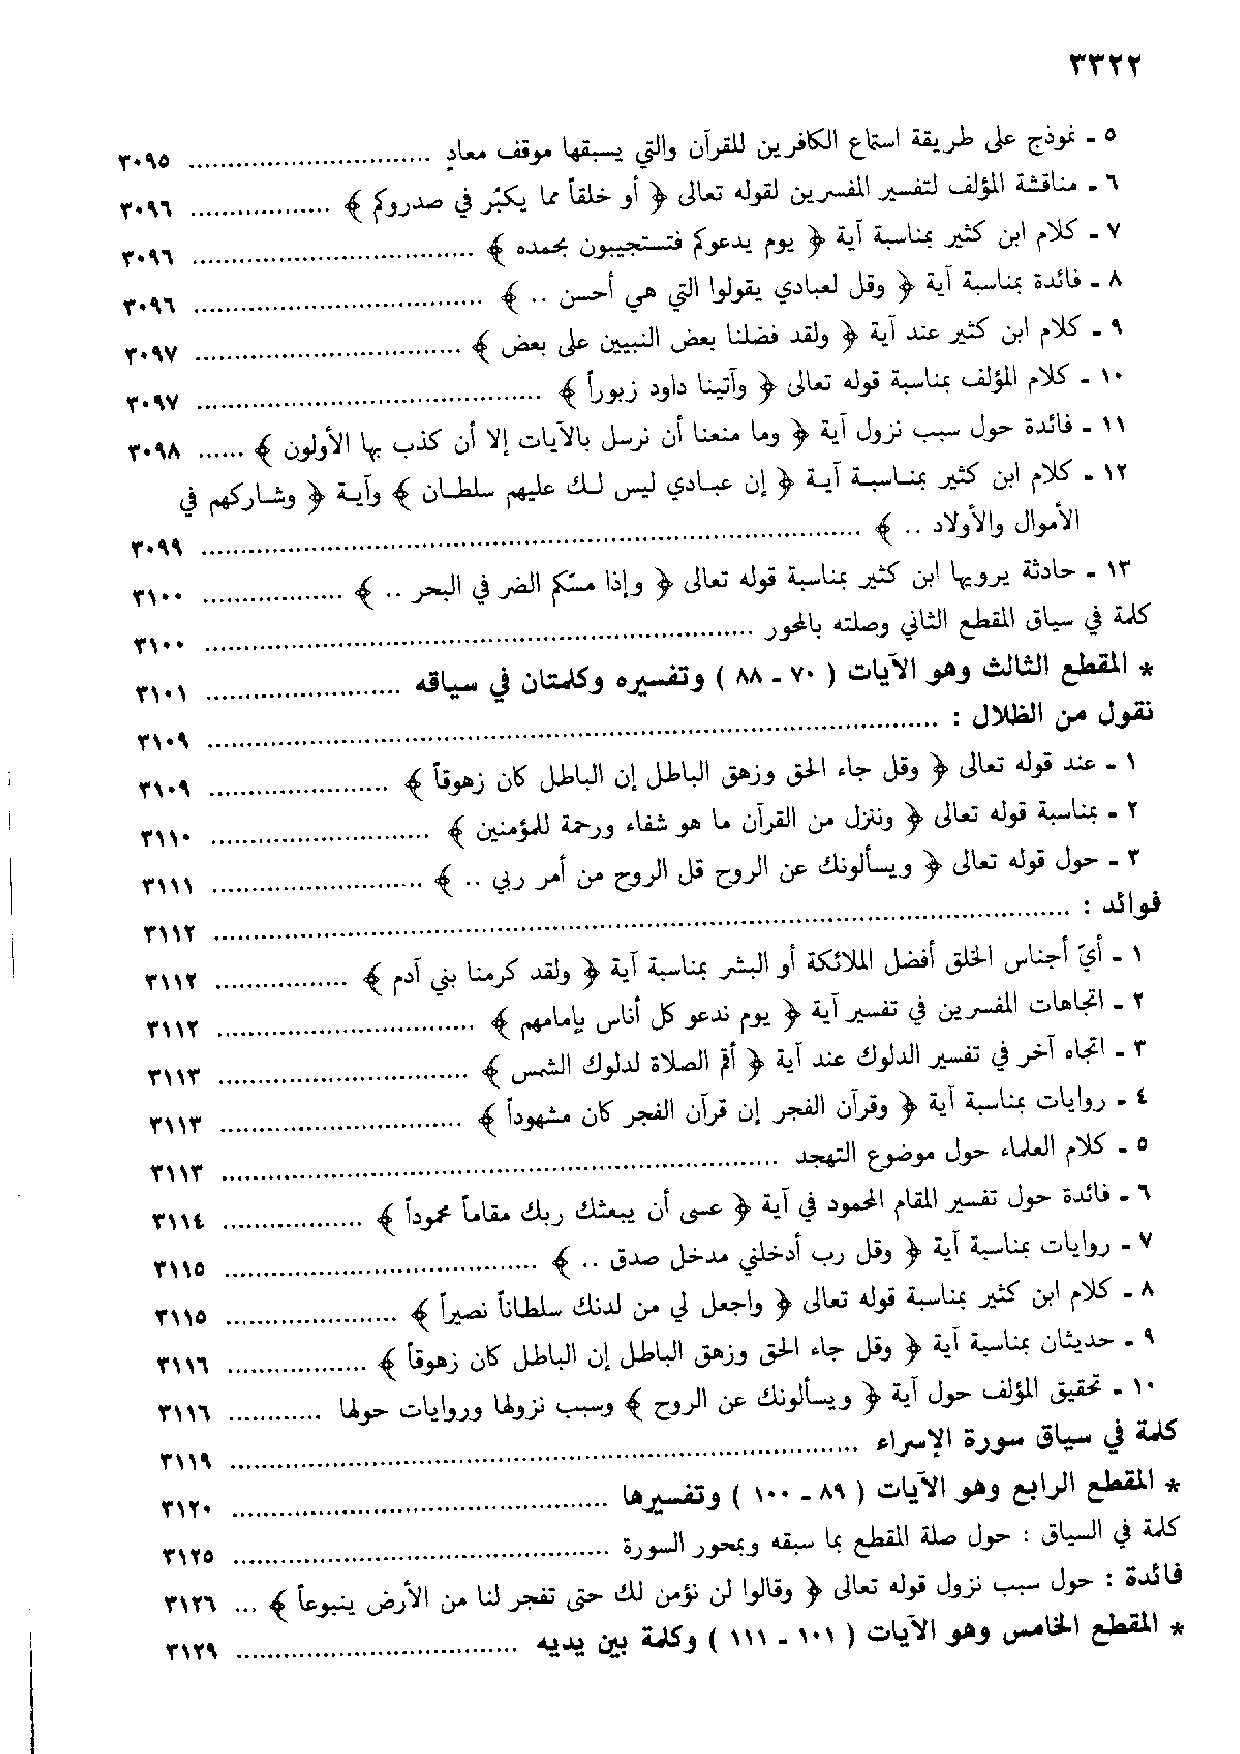 ٣٣٢٢
٥ ـ نموذج على طريقة استماع الكافرين للقرآن والتي يسبقها موقف معادٍ .............................. ٣٠٩٥
٦ ـ مناقشة المؤلف لتفسير المفسرين لقوله تعالى ﴿ أو خلقاً مما يكبُر في صدروكم ﴾ .................. ٣٠٩٦
٧ ـ كلام ابن كثير بمناسبة آية ﴿ يوم يدعوكم فتستجيبون بحمده ﴾ .................................... ٣٠٩٦
٨ ـ فائدة بمناسبة آية ﴿ وقل لعبادي يقولوا التي هي أحسن .. ﴾ ..................................... ٣٠٩٦
٩ ـ كلام ابن كثير عند آية ﴿ ولقد فضلنا بعض النبيين على بعض ﴾ .................................. ٣٠٩٧
١٠ ـ كلام المؤلف بمناسبة قوله تعالى ﴿ وآتينا داود زبوراً ﴾ ............................................ ٣٠٩٧
١١ ـ فائدة حول سبب نزول آية ﴿ وما منعنا أن نرسل بالآيات إلا أن كذب بها الأولون ﴾ ...... ٣٠٩٨
١٢ ـ كلام ابن كثير بمناسبة آية ﴿ إن عبادي ليس لك عليهم سلطان ﴾ وآية ﴿ وشاركهم في
الأموال والأولاد .. ﴾ .................................................................................... ٣٠٩٩
١٣ ـ حادثة يرويها ابن كثير بمناسبة قوله تعالى ﴿ وإذا مسّكم الضر في البحر .. ﴾ .................. ٣١٠٠
كلمة في سياق المقطع الثاني وصلته بالمحور ...................................................................... ٣١٠٠
* المقطع الثالث وهو الآيات ( ٧٠ ـ ٨٨ ) وتفسيره وكلمتان في سياقه ......................... ٣١٠١
نقول من الظلال : ............................................................................................. ٣١٠٩
١ ـ عند قوله تعالى ﴿ وقل جاء الحق وزهق الباطل إن الباطل كان زهوقاً ﴾ ....................... ٣١٠٩
٢ ـ بمناسبة قوله تعالى ﴿ وننزل من القرآن ما هو شفاء ورحمة للمؤمنين ﴾ ............................ ٣١١٠
٣ ـ حول قوله تعالى ﴿ ويسألونك عن الروح قل الروح من أمر ربي .. ﴾ ........................... ٣١١١
فوائد : ............................................................................................................. ٣١١٢
١ ـ أيّ أجناس الخلق أفضل الملائكة أو البشر بمناسبة آية ﴿ ولقد كرمنا بني آدم ﴾ ................. ٣١١٢
٢ ـ اتجاهات المفسرين في تفسير آية ﴿ يوم ندعو كل أناس بإمامهم ﴾ ................................. ٣١١٢
٣ ـ اتجاه آخر في تفسير الدلوك عند آية ﴿ أقم الصلاة لدلوك الشمس ﴾ ................................ ٣١١٣
٤ ـ روايات بمناسبة آية ﴿ وقرآن الفجر إن قرآن الفجر كان مشهوداً ﴾ ............................... ٣١١٣
٥ ـ كلام العلماء حول موضوع التهجد ....................................................................... ٣١١٣
٦ ـ فائدة حول تفسير المقام المحمود في آية ﴿ عسى أن يبعثك ربك مقاماً محموداً ﴾ .................. ٣١١٤
٧ ـ روايات بمناسبة آية ﴿ وقل رب أدخلني مدخل صدق .. ﴾ ........................................ ٣١١٥
٨ ـ كلام ابن كثير بمناسبة قوله تعالى ﴿ واجعل لي من لدنك سلطاناً نصيراً ﴾ ...................... ٣١١٥
٩ ـ حديثان بمناسبة آية ﴿ وقل جاء الحق وزهق الباطل إن الباطل كان زهوقاً ﴾ .................. ٣١١٦
١٠ ـ تحقيق المؤلف حول آية ﴿ ويسألونك عن الروح ﴾ وسبب نزولها وروايات حولها ............ ٣١١٦
كلمة في سياق سورة الإسراء ................................................................................ ٣١١٩
* المقطع الرابع وهو الآيات ( ٨٩ ـ ١٠٠ ) وتفسيرها ................................................ ٣١٢٠
كلمة في السياق : حول صلة المقطع بما سبقه وبمحور السورة ................................................ ٣١٢٥
فائدة : حول سبب نزول قوله تعالى ﴿ وقالوا لن نؤمن لك حتى تفجر لنا من الأرض ينبوعاً ﴾ ... ٣١٢٦
* المقطع الخامس وهو الآيات ( ١٠١ ـ ١١١ ) وكلمة بين يديه .................................... ٣١٢٩